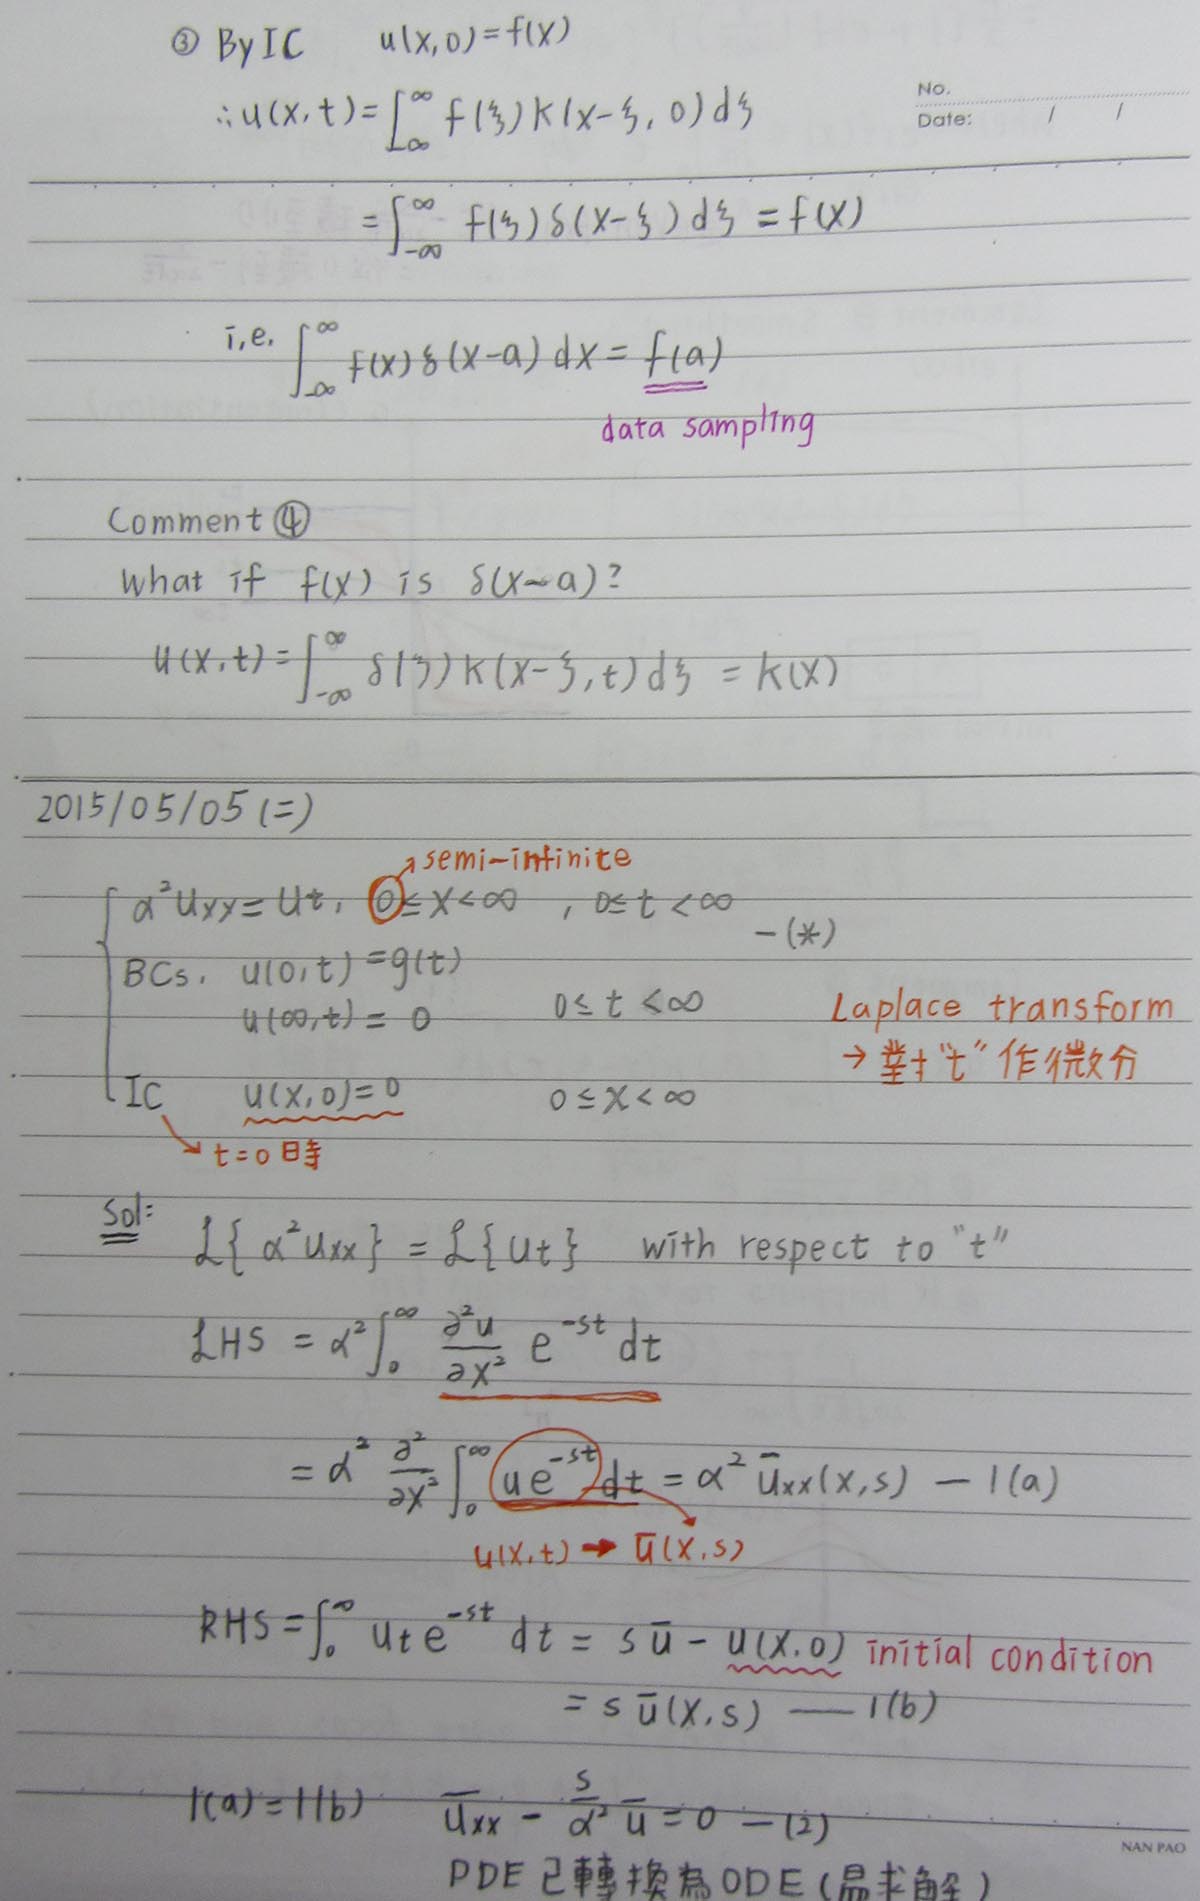 ③ By IC u(x,0)=f(x)
No.
Date: / /
∴u(x,t)=∫_∞^∞ f(ξ)k(x-ξ,0)dξ
=∫_-∞^∞ f(ξ)δ(x-ξ)dξ = f(x)
i.e. ∫_-∞^∞ f(x)δ(x-a)dx = f(a)
data sampling
Comment ④
What if f(x) is δ(x-a)?
u(x,t)=∫_-∞^∞ δ(ξ)k(x-ξ,t)dξ = k(x)
2015/05/05(二)
semi-infinite
α²uxx=ut, 0≤x<∞, 0≤t<∞
-(*)
BCs. u(0,t)=g(t)
u(∞,t)=0 0≤t<∞
Laplace transform
→對"t"作微分
IC u(x,0)=0 0≤x<∞
t=0時
Sol:
ℒ{α²uxx}=ℒ{ut} with respect to "t"
LHS = α²∫_0^∞ ∂²u/∂x² e^-st dt
= α² ∂²/∂x² ∫_0^∞ ue^-st dt = α² ūxx(x,s) — 1(a)
u(x,t)→ū(x,s)
RHS = ∫_0^∞ ut e^-st dt = sū - u(x,0) initial condition
= s ū(x,s) — 1(b)
1(a)=1(b) ūxx - s/α² ū = 0 —(2)
NAN PAO
PDE已轉換為ODE(易求解)